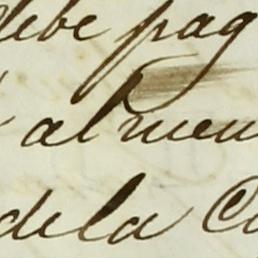 debe pag
al men
de la C